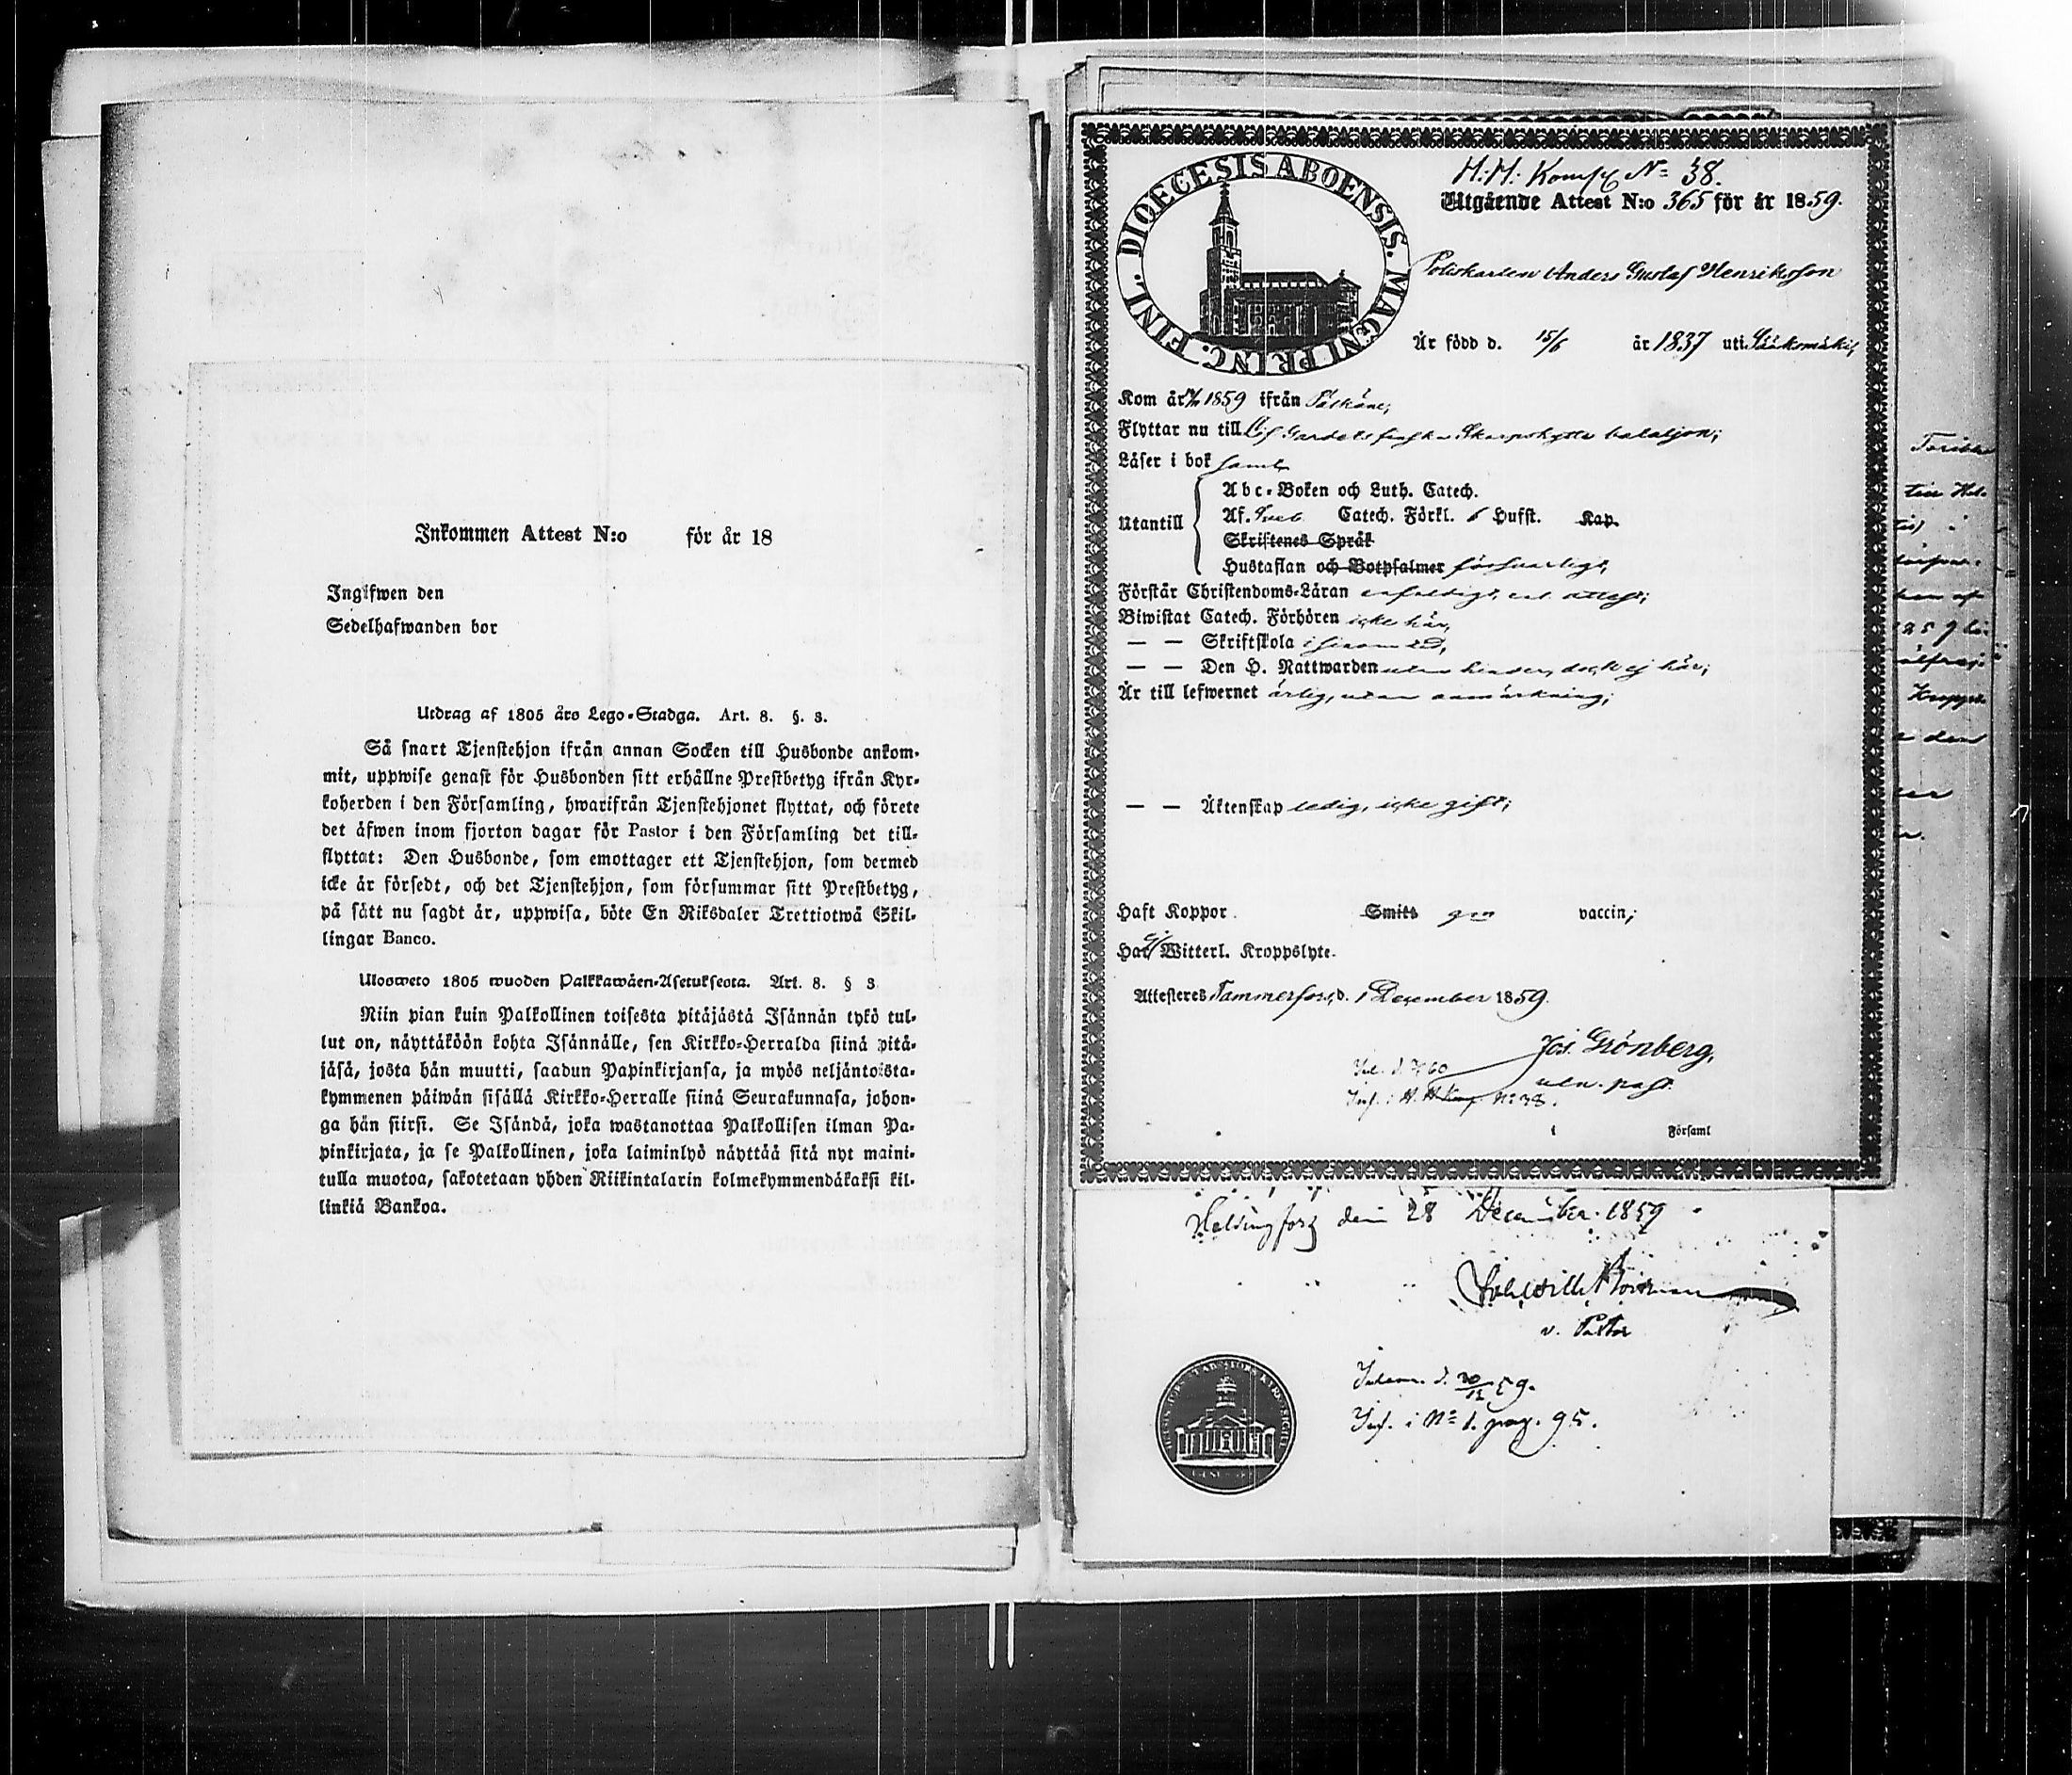 Inkommen Attest N:o för år 18
Ingifwen den
Sedelhafwanden bor
Utdrag af 1805 års Lego-Stadga. Art. 8. §. 3.
Så snart Tjenstehjon ifrån annan Socken till Husbonde ankom-
mit, uppwise genast för Husbonden sitt erhållne Prestbetyg ifrån Kyr-
koherden i den Församling, hwarifrån Tjenstehjonet flyttat, och förete
det äfwen inom fjorton dagar för Pastor i den Församling det till-
flyttat: Den Husbonde, som emottager ett Tjenstehjon, som dermed
icke är försedt, och det Tjenstehjon, som försummar sitt Prestbetyg,
på sätt nu sagdt är, uppwisa, böte En Riksdaler Trettiotwå Skil-
lingar Banco.
Ulosweto 1805 wuoden Palkkawäen-Asetuksesta. Art. 8. § 3
Niin pian kuin Palkollinen toisesta pitäjästä Isännän tykö tul-
lut on, näyttäköön kohta Isännälle, sen Kirkko-Herralda siinä pitä-
jäsä, josta hän muutti, saadun Papinkirjansa, ja myös neljäntoista-
kymmenen päiwän sisällä Kirkko-Herralle siinä Seurakunnasa, johon-
ga hän siirsi. Se Isändä, joka wastanottaa Palkollisen ilman Pa-
pinkirjata, ja se Palkollinen, joka laiminlyö näyttää sitä nyt maini-
tulla muotoa, sakotetaan yhden Riikintalarin kolmekymmendäkaksi kil-
linkiä Bankoa.
DIOECESIS ABOENSIS. MAGNI PRINC. FINL.
H:H: Komp N:o 38.
Utgående Attest N:o 365 för år 1859.
Poliskarlen Anders Gustaf Henriksson
Är född d. 15/6 år 1837 uti Sääksmäki,
Kom år 1859 ifrån Pälkäne,
Flyttar nu till Lif Gardets finska Skarpskytte bataljon;
Läser i bok samt
Utantill
Abc-Boken och Luth. Catech.
Af. Sveb. Catech. Förkl. 6 Hufst. Kap.
Skriftenes Språk
Hustaflan och Botpsalmer försvarligt,
Förstår Christendoms-Läran enfaldigt, enl. attest;
Biwistat Catech. Förhören icke här,
— — Skriftskola
— — Den H. Nattwarden utan hinder, dock ej här;
Är till lefwernet ärlig, utan anmärkning;
— — Äktenskap ledig, icke gift;
Haft Koppor Smitt gm vaccin;
Har ej Witterl. Kroppslyte.
Attesteres Tammerfors, d. 1 December 1859.
Jos. Grönberg,
Inl. d. 60
Inf. i H. H. Komp N:o 38.
i Församl
Helsingfors den 28 December 1859
v. Pastor
Inlemn. d. 30/12 59.
Inf. i N:o 1. pag. 95.